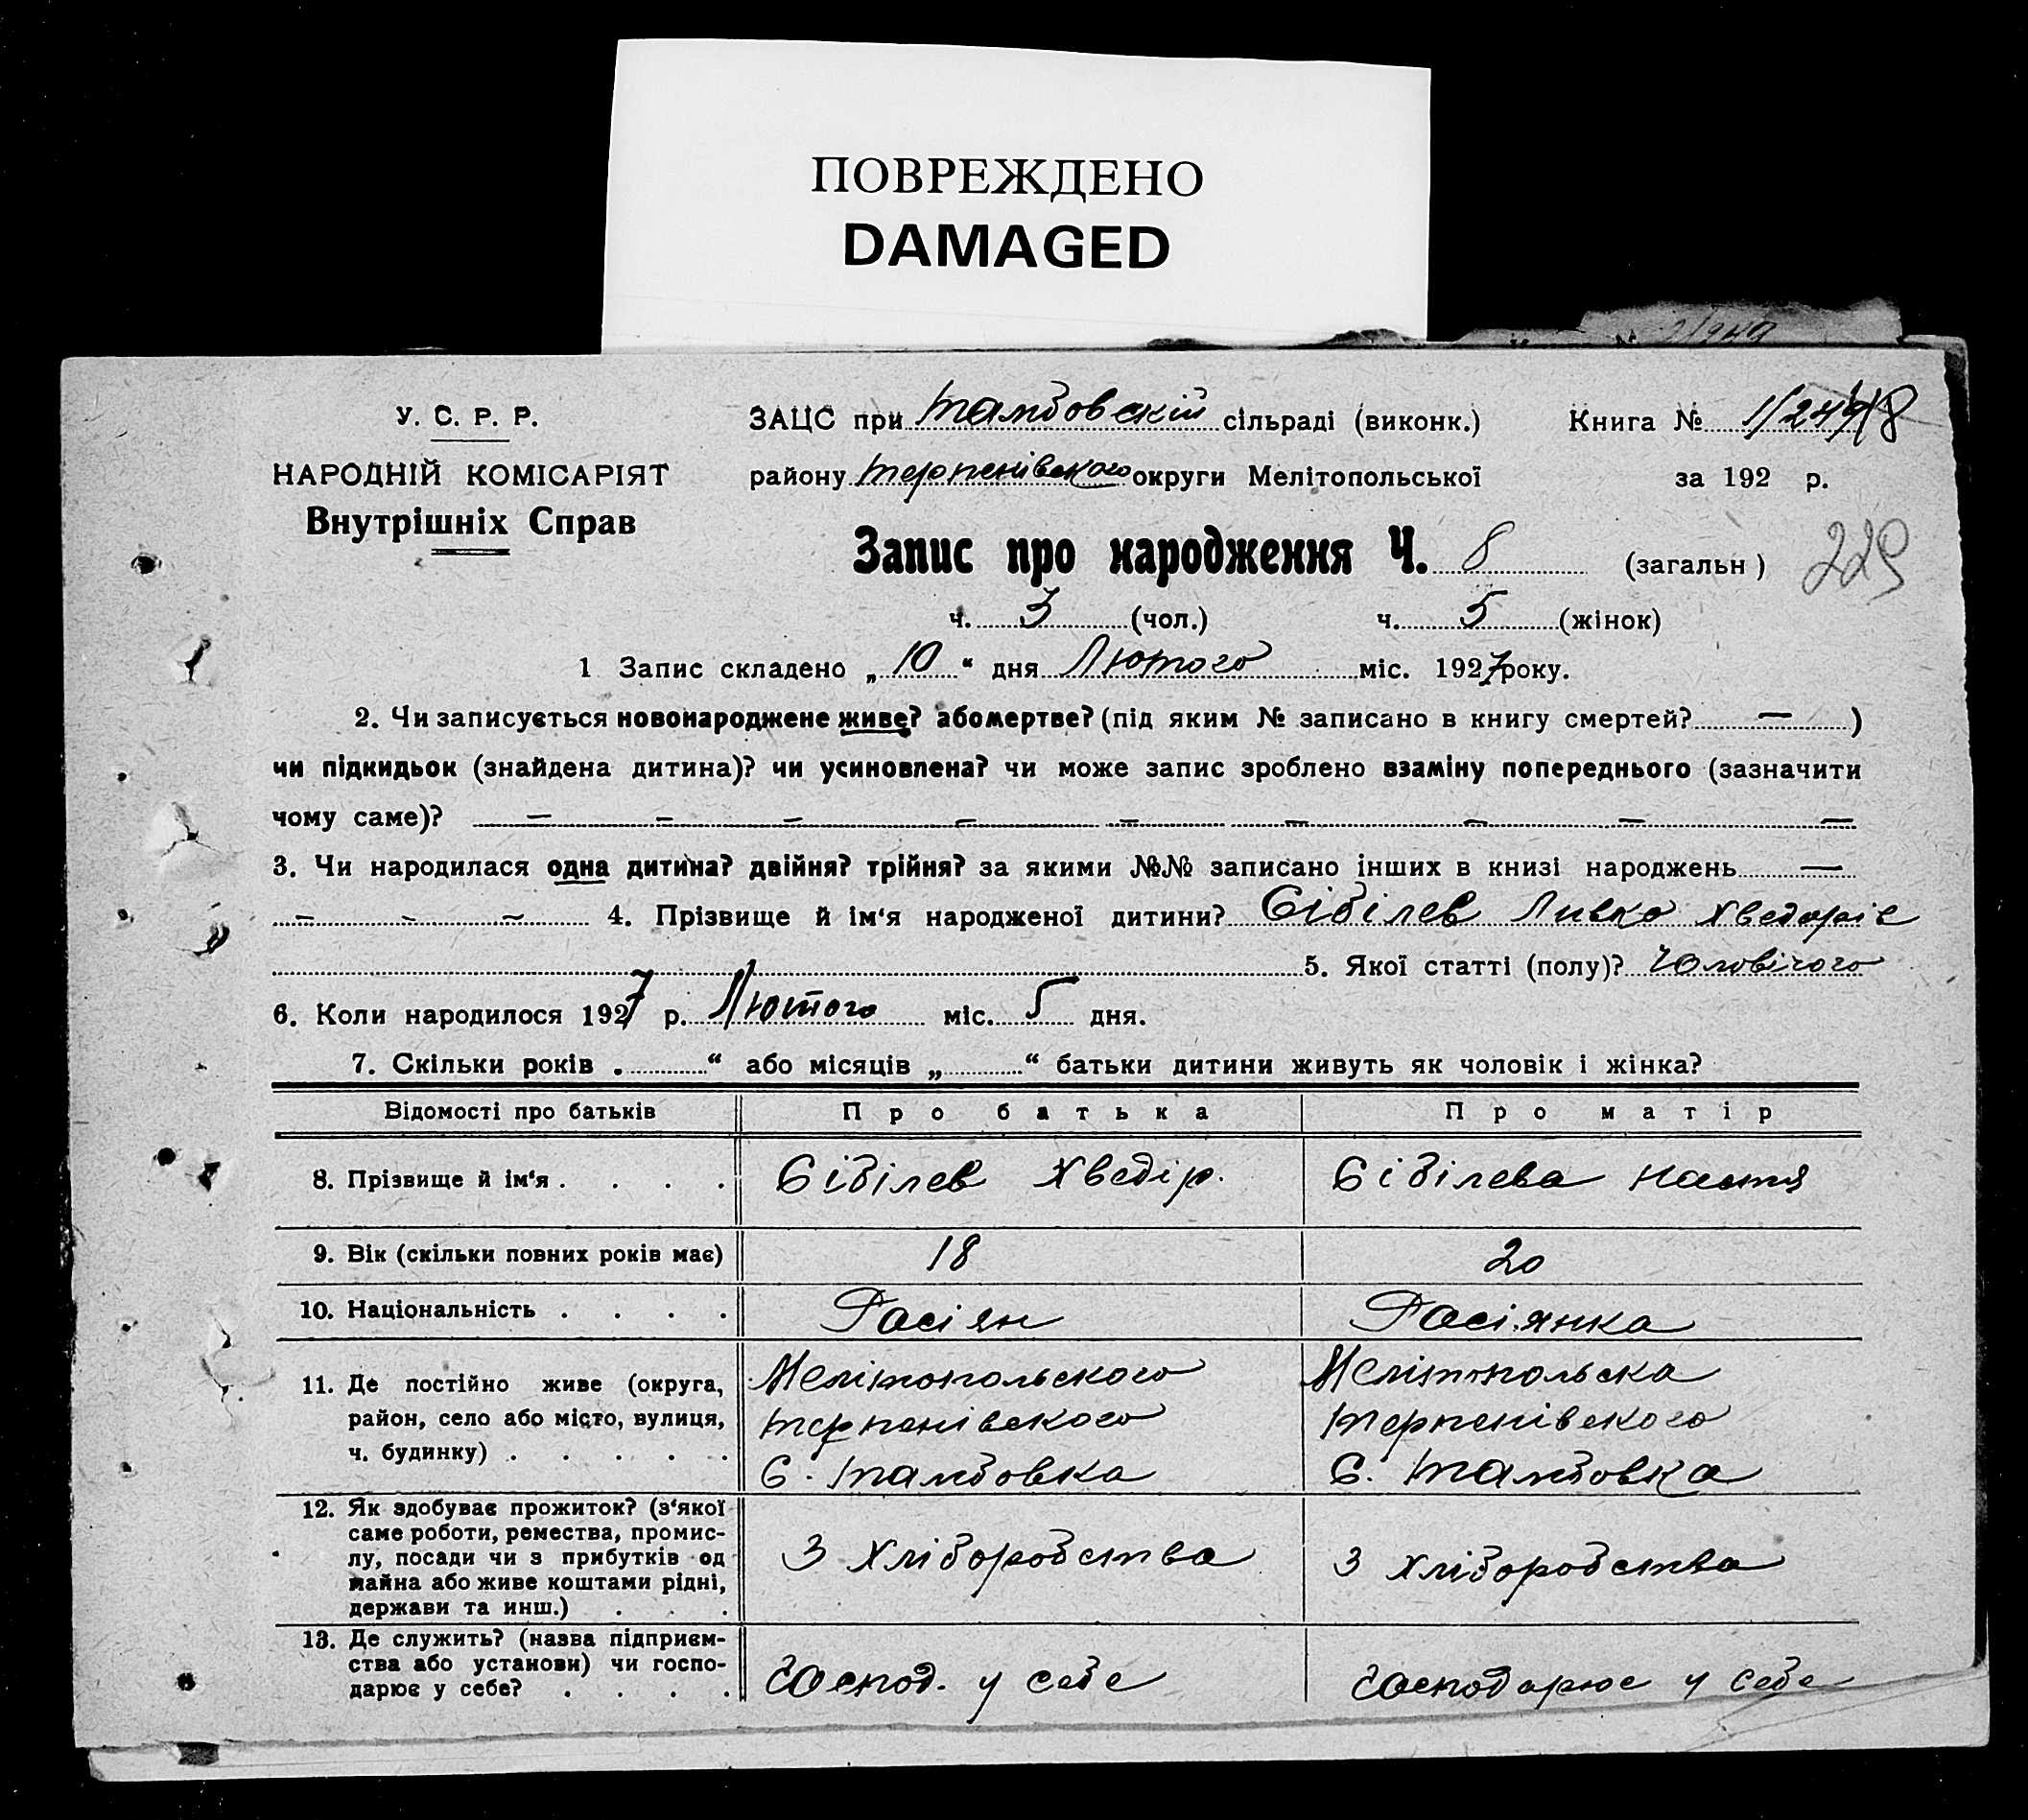 ПОВРЕЖДЕНО
DAMAGED
У. С. Р. Р.
НАРОДНІЙ КОМІСАРІЯТ
Внутрішніх Справ
ЗАЦС при Тамбовскій сільраді (виконк.)
Книга №
району Терпенівского округи Мелітопольської
за 192 р.
Запис про народження Ч. 8 (загальн)
229
ч. 3 (чол.) ч. 5 (жінок)
1 Запис складено „10“ дня Лютого міс. 1927 року.
2. Чи записується новонароджене живе? абомертве? (під яким № записано в книгу смертей? — )
чи підкидьок (знайдена дитина)? чи усиновлена? чи може запис зроблено взаміну попереднього (зазначити
чому саме)? — — — — — — — — —
3. Чи народилася одна дитина? двійня? трійня? за якими №№ записано інших в книзі народжень —
— — — 4. Прізвище й ім‘я народженої дитини? Сібілев Ливко Хведоріє
5. Якої статті (полу)? Чоловічого
6. Коли народилося 1927 р. Лютого міс. 5 дня.
7. Скільки років . “ або місяців „ “ батьки дитини живуть як чоловік і жінка?
Відомості про батьків Про батька Про матір
8. Прізвище й ім‘я . . . . Сібілев Хведір. Сібілева Настя
9. Вік (скільки повних років має) 18 20
10. Національність . . . . Расіян Расіянка
11. Де постійно живе (округа, Мелітопольского Мелітопольска
район, село або місто, вулиця, Терпенівского Терпенівского
ч. будинку) . . . . . С. Тамбовка С. Тамбовка
12. Як здобуває прожиток? (з‘якої
саме роботи, ремества, промис-
лу, посади чи з прибутків од З Хліборобства З Хліборобства
майна або живе коштами рідні,
держави та инш.) . . .
13. Де служить? (назва підприєм-
ства або установи) чи госпо-
дарює у себе? . . . . Господ. у себе Господарює у себе